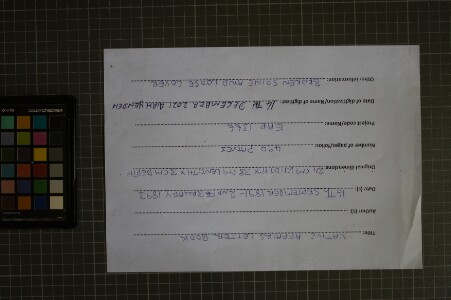 Title: NATIVE AFFAIRS LETTER BOOK
Author (s):
Date (s): 16TH SEPTEMBER 1891 - 2ND FEBRUARY 1893
Original dimensions: 24 CM WIDTH X 38 CM LENGTH X 3 CM DEPTH
Number of pages/folios: 490 PAGES
Project code/Name: EAP 1266
Date of digitization/Name of digitizer: 16TH DECEMBER 2021
Other information: BROKEN SPINE AND LOOSE COVER